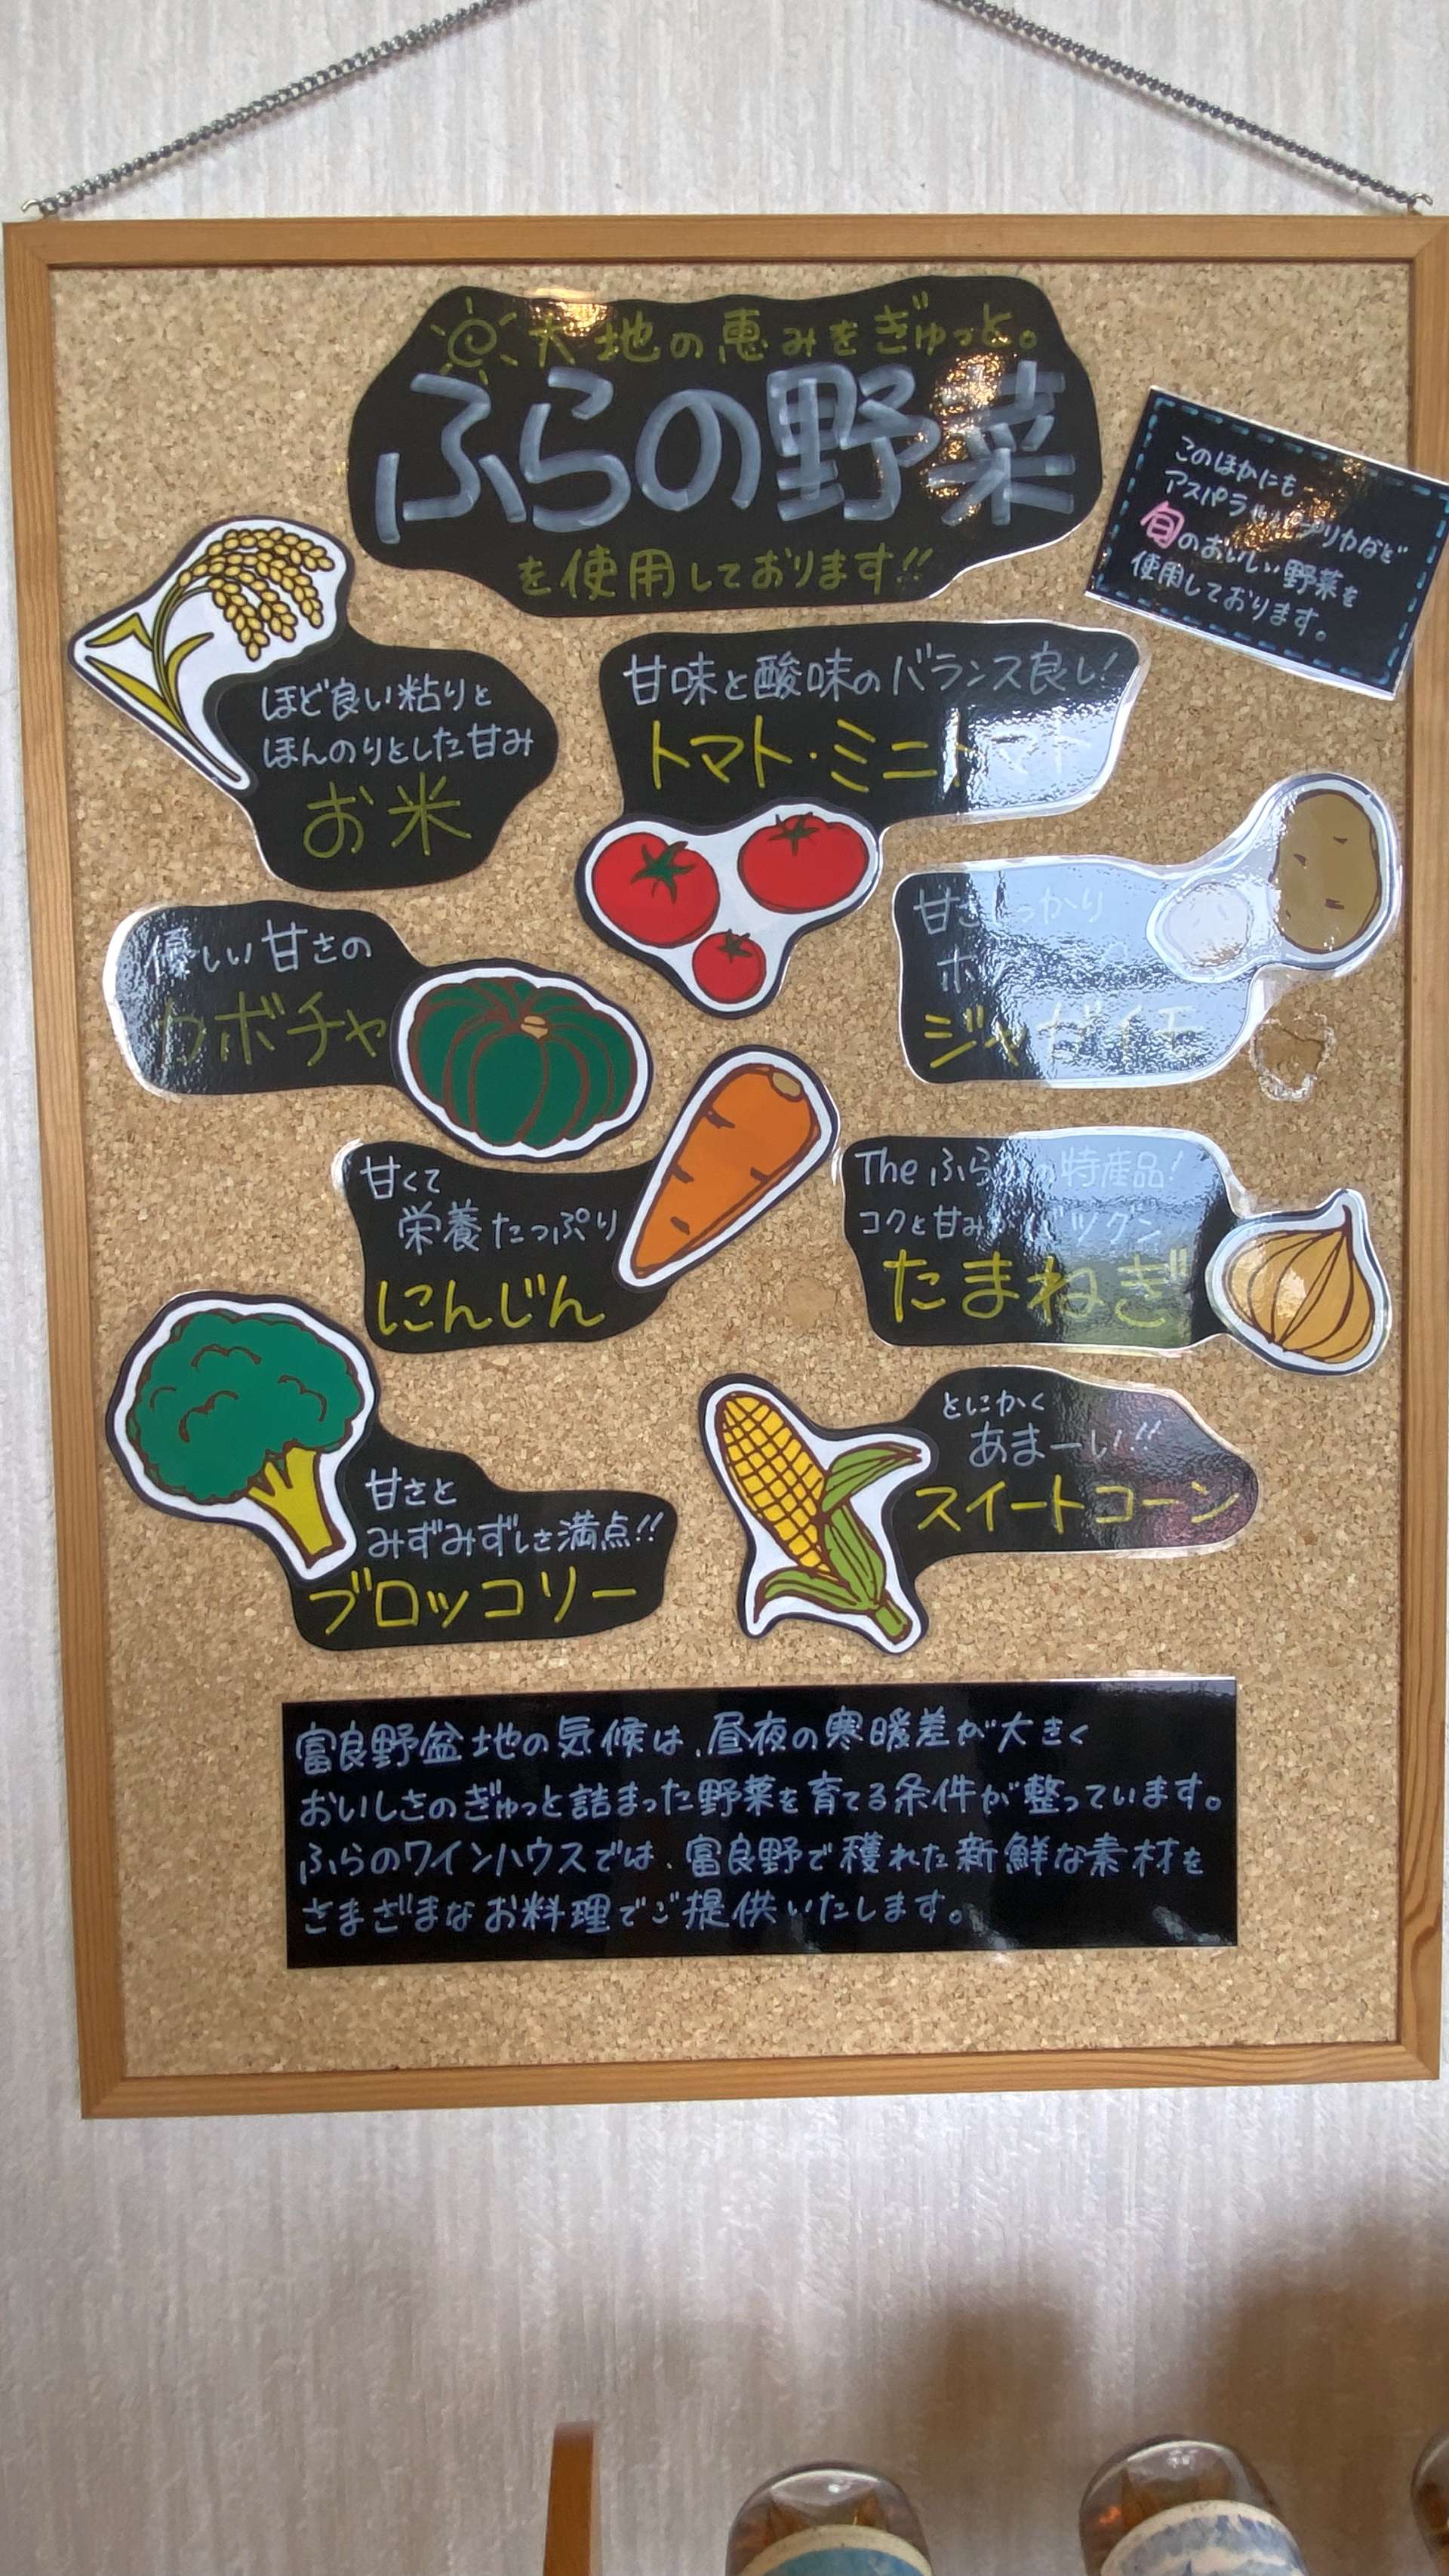 大地の恵みをぎゅっと。
ふらの野菜
を使用しております!!
このほかにも
アスパラ プリカなど
旬のおいしい野菜を
使用しております。
ほど良い粘りと
ほんのりとした甘み
お米
甘味と酸味のバランス良し!
トマト・ミニトマト
優しい甘さの
カボチャ
甘さ っかり
ホ
ジャガイモ
甘くて
栄養たっぷり
にんじん
The ふらの 特産品!
コクと甘み バツグン
たまねぎ
甘さと
みずみずしさ満点!!
ブロッコリー
とにかく
あまーい!!
スイートコーン
富良野盆地の気候は、昼夜の寒暖差が大きく
おいしさのぎゅっと詰まった野菜を育てる条件が整っています。
ふらのワインハウスでは、富良野で穫れた新鮮な素材を
さまざまなお料理でご提供いたします。